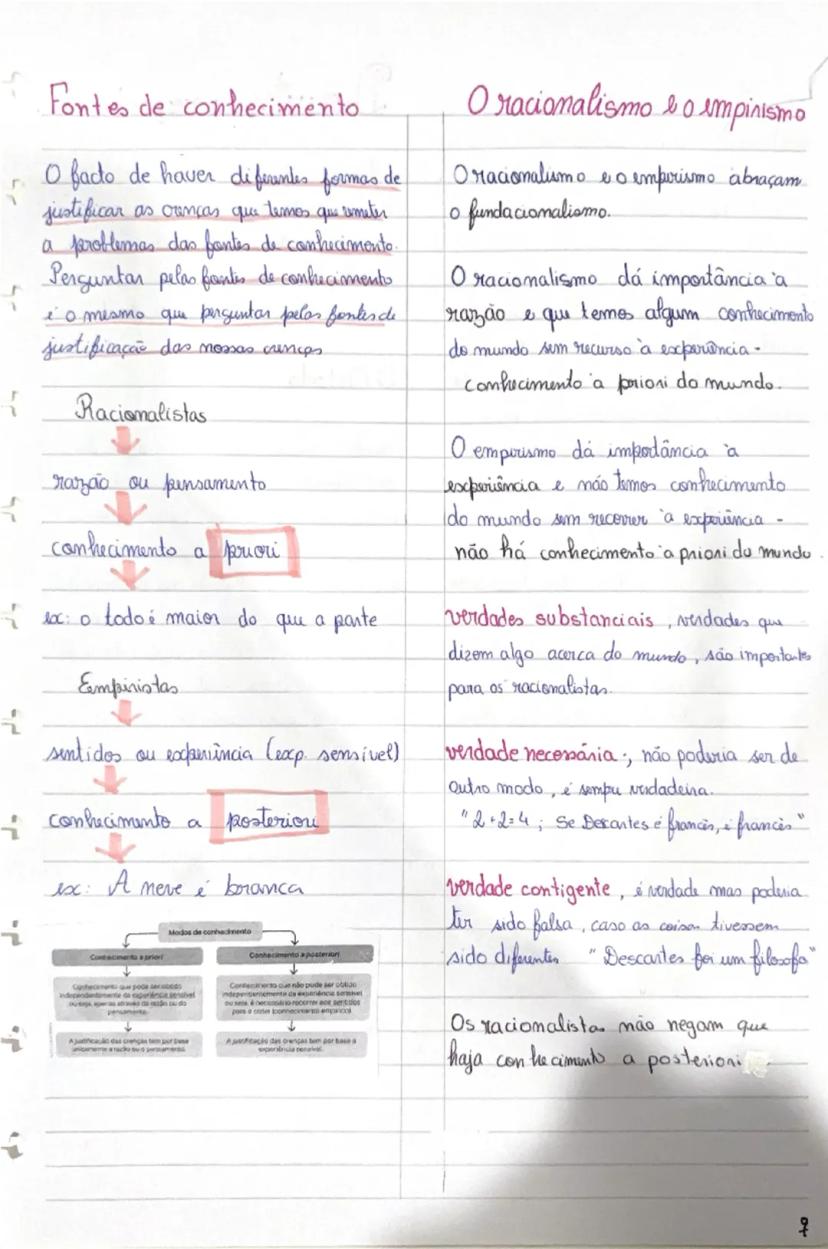 Fontes de conhecimento
O facto de haver diferentes formas de
justificar as crenças que temos que remeter
a problemas das fontes de conhecimento.
Perguntar pelas fontes de conhecimento
é o mesmo que perguntar pelas fontes de
justificação das nossas crenças
Racionalistas
razão ou pensamento
conhecimento a priori
ex: o todo é maior do que a parte
Empiristas
sentidos ou experiência (exp. sensível)
conhecimento a posteriori
ex: A neve é branca
Modos de conhecimento
Conhecimento a priori
Conhecimento que pode ser obtido
independentemente da experiência sensível
ou seja, apenas através da razão ou do
pensamento.
A justificação das crenças tem por base
unicamente a razão ou o pensamento.
Conhecimento a posteriori
Conhecimento que não pode ser obtido
independentemente da experiência sensível
ou seja, é necessário recorrer aos sentidos
para o obter (conhecimento empírico).
A justificação das crenças tem por base a
experiência sensível.
O racionalismo e o empirismo
O racionalismo e o empirismo abraçam
o fundacionalismo.
O racionalismo dá importância à
razão e que temos algum conhecimento
do mundo sem recurso à experiência -
conhecimento à priori do mundo.
O empirismo dá importância à
experiência e não temos conhecimento
do mundo sem recorrer à experiência -
não há conhecimento à priori do mundo
verdades substanciais, verdades que
dizem algo acerca do mundo, são importantes
para os racionalistas.
verdade necessária:, não poderia ser de
outro modo, é sempre verdadeira.
"2+2=4; Se Descartes é francês, é francês"
verdade contigente, é verdade mas poderia
ter sido falsa, caso as coisas tivessem
sido diferentes "Descartes foi um filosofo"
Os racionalista não negam que
haja conhecimento a posteriori